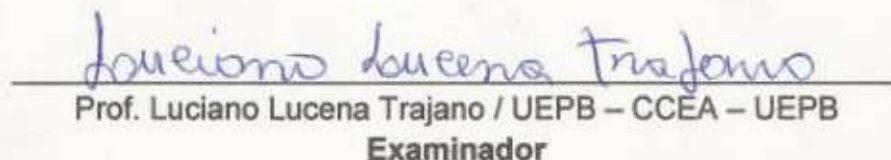 Luciano Lucena Trajano
Prof. Luciano Lucena Trajano / UEPB – CCEA – UEPB
Examinador